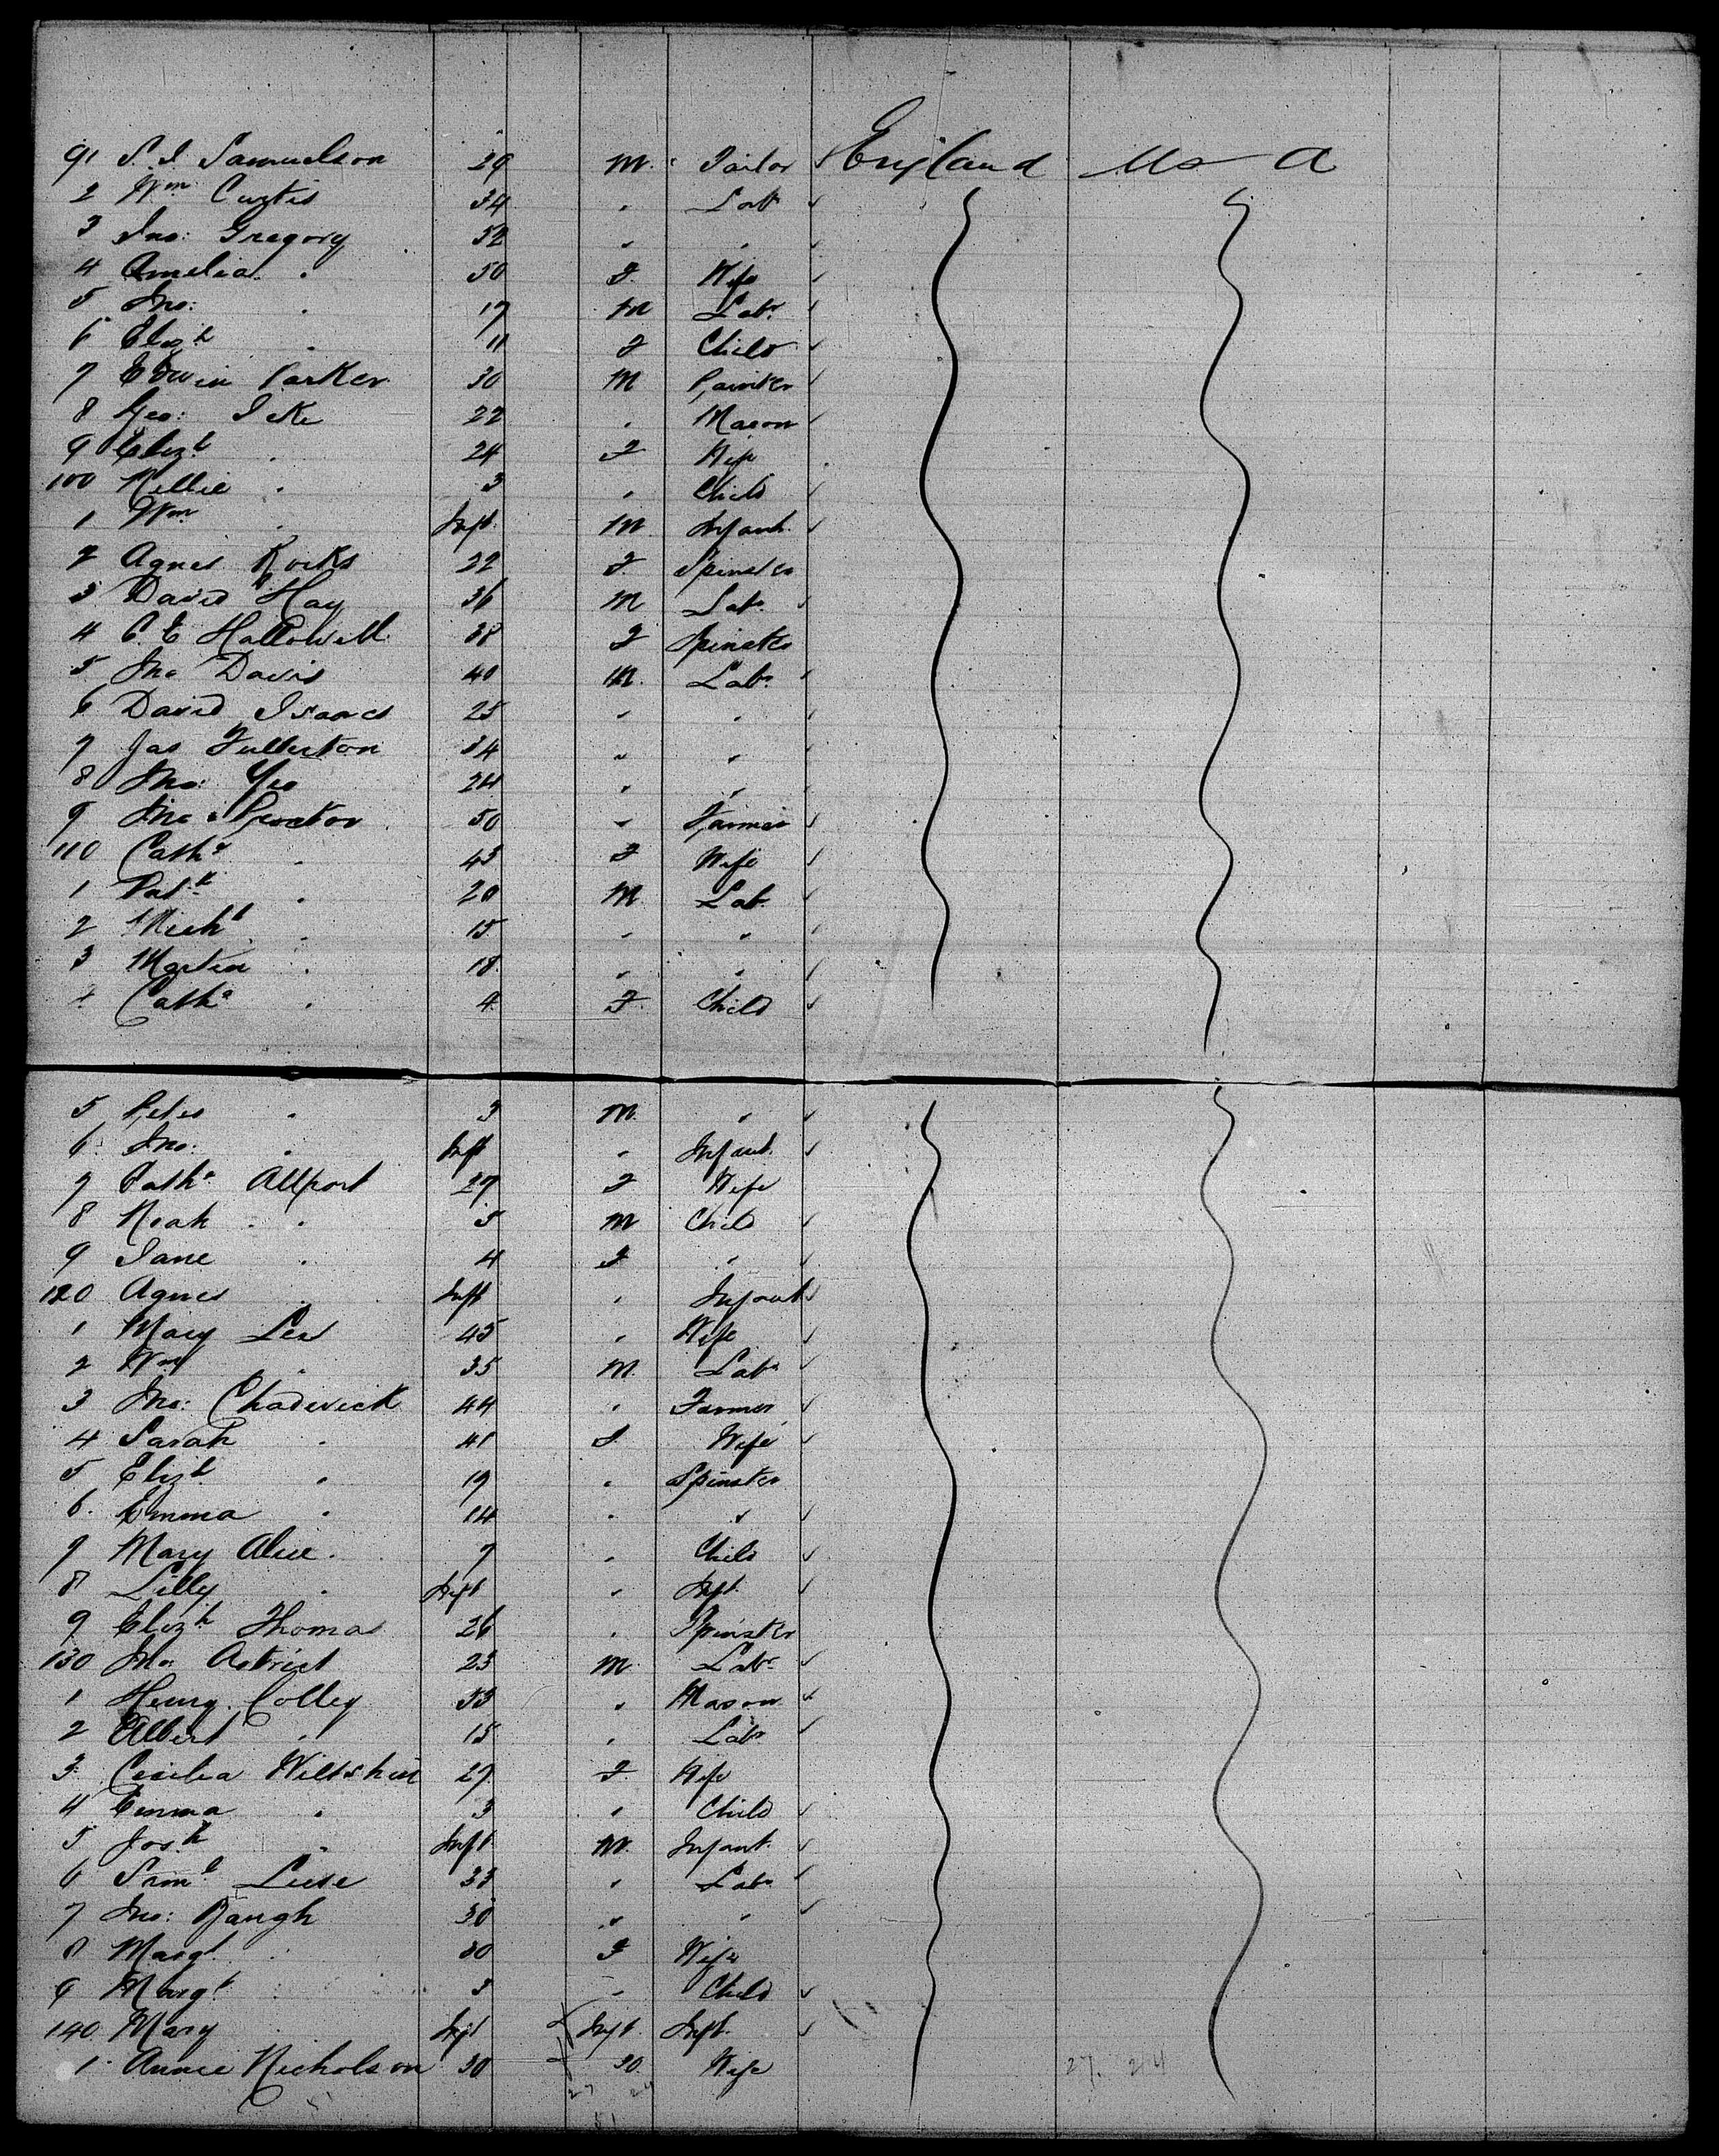 91 S. I. Samuelson 29 M. Tailor England US A
2 Wm Curtis 34 " Lab
3 Jno: Gregory 52 " "
4 Amelia " 50 F. Wife
5 Jno: " 17 M Labr
6 Elizh " 11 F Child
7 Edwin Parker 30 M Painter
8 Geo: Ike 22 " Mason
9 Elizh " 24 F Wife
100 Nellie " 3 " Child
1 Wm " Inft. M Infant.
2 Agnes Rorks 22 F. Spinster
3 David Hay 36 M Labr
4 C. E Hallowell 38 F Spinster
5 Jno Davis 40 M. Labr
6 David Isaacs 25 " "
7 Jas Fullerton 34 " "
8 Jno: Yeo 24 " "
9 Jno Procktor 50 " Farmer
110 Cathe " 45 F Wife
1 Patk " 20 M Lab.
2 Michl " 15 " "
3 Martin " 18 " "
4 Cathe " 4 F. Child
5 Peter " 3 M. "
6 Jno: " Inft " Infant.
7 Cathe Allport 27 F Wife
8 Noah " 5 M Child
9 Jane " 4 F "
120 Agnes " Inft " Infant
1 Mary Lee 45 " Wife
2 Wm " 35 M. Labr
3 Jno: Chadwick 44 " Farmer
4 Sarah " 41 F. Wife
5 Elizh " 19 " Spinster
6. Emma " 14 " "
7 Mary Alice " 7 " Child
8 Lilly " Inft " Inft.
9 Elizh Thomas 26 " Spinster
130 Jno 23 M Labr
1 Henry Colley 33 " Mason
2 Albert " 15 " Labr
3 Cecilia Wiltshire 27 F. Wife
4 Emma " 3 " Child
5 Josh " Inft. M. Infant.
6 Saml Leese 33 " Labr
7 Jno: Baugh 30 " "
8 Margt " 30 F Wife
9 Margt " 3 " Child
140 Mary " Inft Inft. Inft.
1 Annie Nicholson 30 30. Wife
27 24 27. 24
51